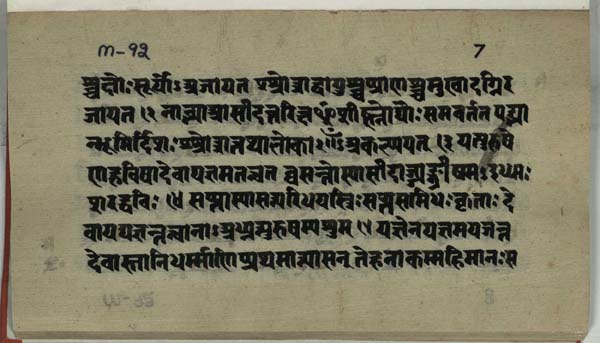 m-१२ 7
श्चक्षोःसूर्य्योऽअजायत श्रोत्राद्वायुश्चप्राणश्चमुखादग्निर
जायत १२ नाभ्याआसीदन्तरिक्षᳪशीर्ष्णोद्यौःसमवर्तत पद्भ्या
म्भूमिर्दिशःश्रोत्रात्तथालोकाँऽअकल्पयन् १३ यत्पुरुषे
णहविषादेवायज्ञमतन्वत वसन्तोस्यासीदाज्यङ्ग्रीष्मऽइध्मः
शरद्धविः १४ सप्तास्यासन्परिधयस्त्रिःसप्तसमिधःकृताः दे
वायद्यज्ञन्तन्वानाऽअबध्नन्पुरुषम्पशुम् १५ यज्ञेनयज्ञमयजन्त
देवास्तानिधर्म्माणिप्रथमान्यासन् तेहनाकम्महिमानःस